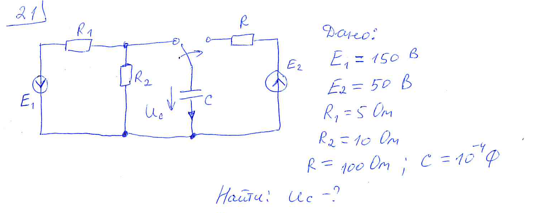 21)
R1
R
R2
E1
Uc
C
E2
Дано:
E1 = 150 В
E2 = 50 В
R1 = 5 Ом
R2 = 10 Ом
R = 100 Ом ; C = 10⁻⁴ Ф
Найти: Uc - ?